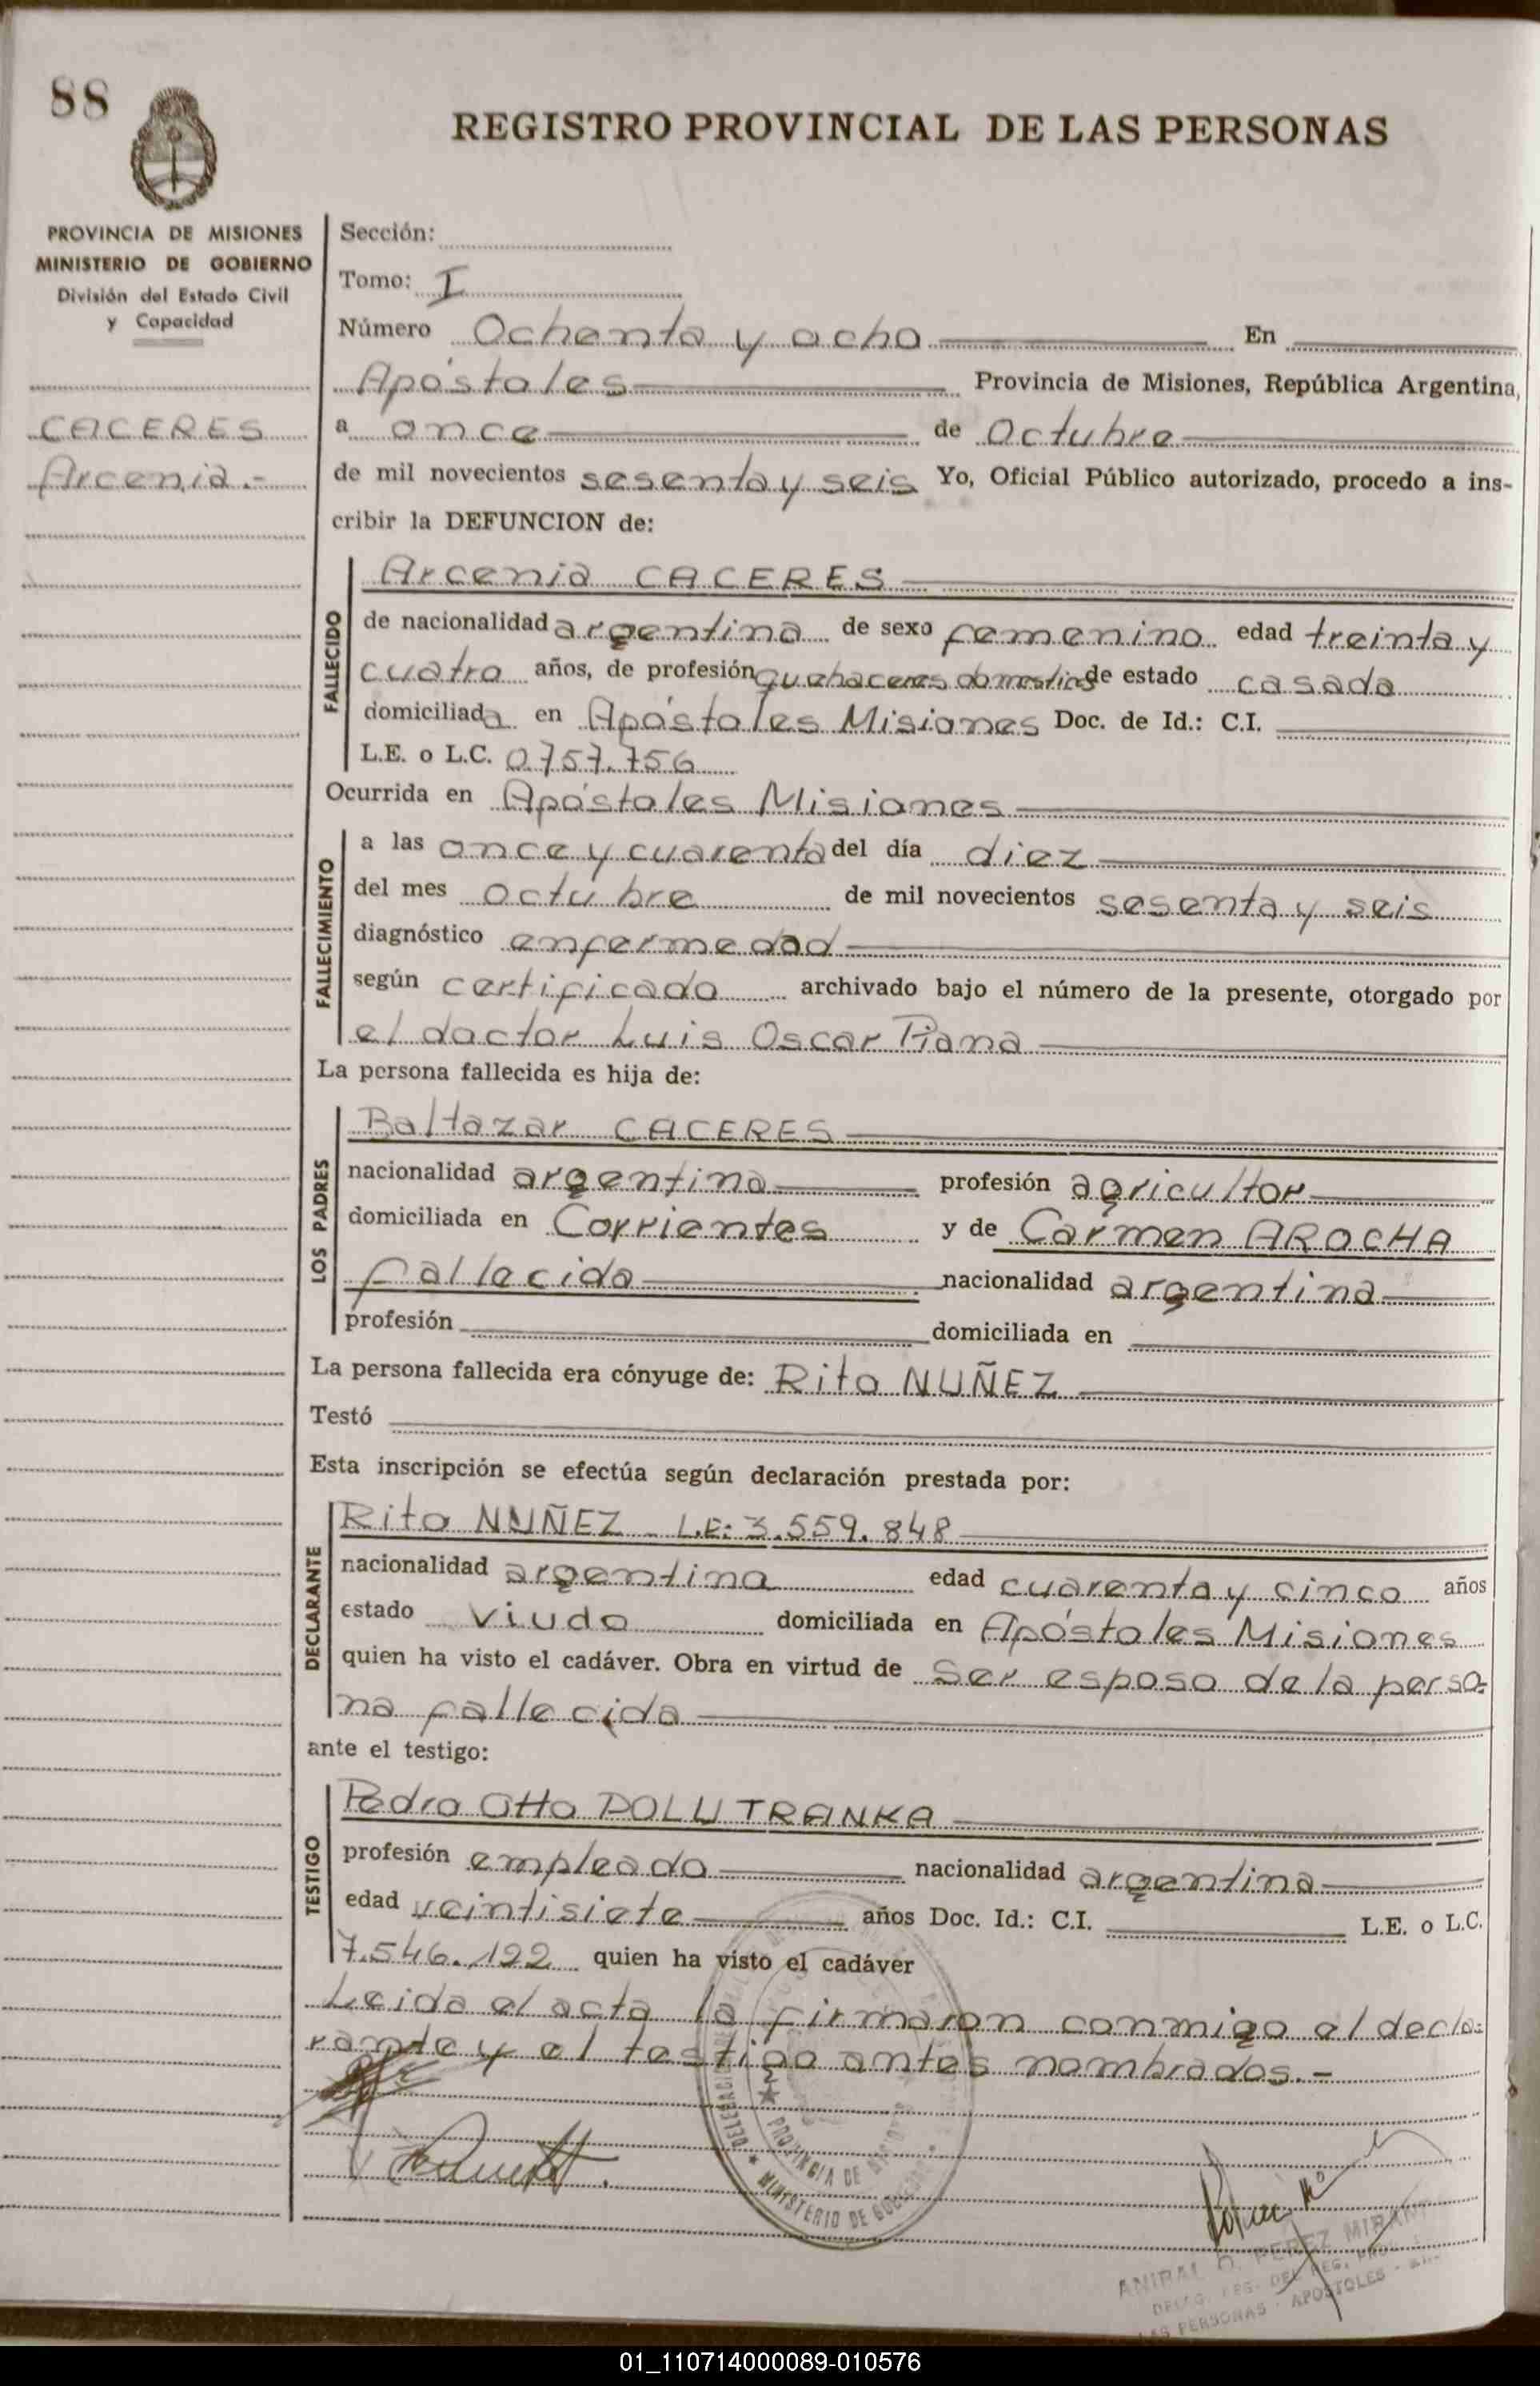 88
REGISTRO PROVINCIAL DE LAS PERSONAS
PROVINCIA DE MISIONES
MINISTERIO DE GOBIERNO
División del Estado Civil
y Capacidad
CACERES
Arcenia.-
Sección:
Tomo: I
Número Ochenta y ocho En
Apóstoles Provincia de Misiones, República Argentina,
a once de Octubre
de mil novecientos sesenta y seis Yo, Oficial Público autorizado, procedo a ins-
cribir la DEFUNCION de:
FALLECIDO
Arcenia CACERES
de nacionalidad argentina de sexo femenino edad treinta y
cuatro años, de profesión quehaceres domesticos de estado casada
domiciliada en Apóstoles Misiones Doc. de Id.: C.I.
L.E. o L.C. 0.757.756
Ocurrida en Apóstoles Misiones
FALLECIMIENTO
a las once y cuarenta del día diez
del mes octubre de mil novecientos sesenta y seis
diagnóstico enfermedad
según certificado archivado bajo el número de la presente, otorgado por
el doctor Luis Oscar Piana
La persona fallecida es hija de:
LOS PADRES
Baltazar CACERES
nacionalidad argentina profesión agricultor
domiciliada en Corrientes y de Carmen AROCHA
fallecida nacionalidad argentina
profesión domiciliada en
La persona fallecida era cónyuge de: Rito NUÑEZ
Testó
Esta inscripción se efectúa según declaración prestada por:
DECLARANTE
Rito NUÑEZ - L.E: 3.559.848
nacionalidad argentina edad cuarenta y cinco años
estado viudo domiciliada en Apóstoles Misiones
quien ha visto el cadáver. Obra en virtud de Ser esposo de la perso-
na fallecida
ante el testigo:
TESTIGO
Pedro Otto POLUTRANKA
profesión empleado nacionalidad argentina
edad veintisiete años Doc. Id.: C.I. L.E. o L.C.
7.546.122 quien ha visto el cadáver
Leida el acta la firmaron conmigo el decla-
rante y el testigo antes nombrados.-
PROVINCIA DE
MINISTERIO DE
ANIBAL O. PEREZ
PERSONAS - APOSTOLES -
01_110714000089-010576